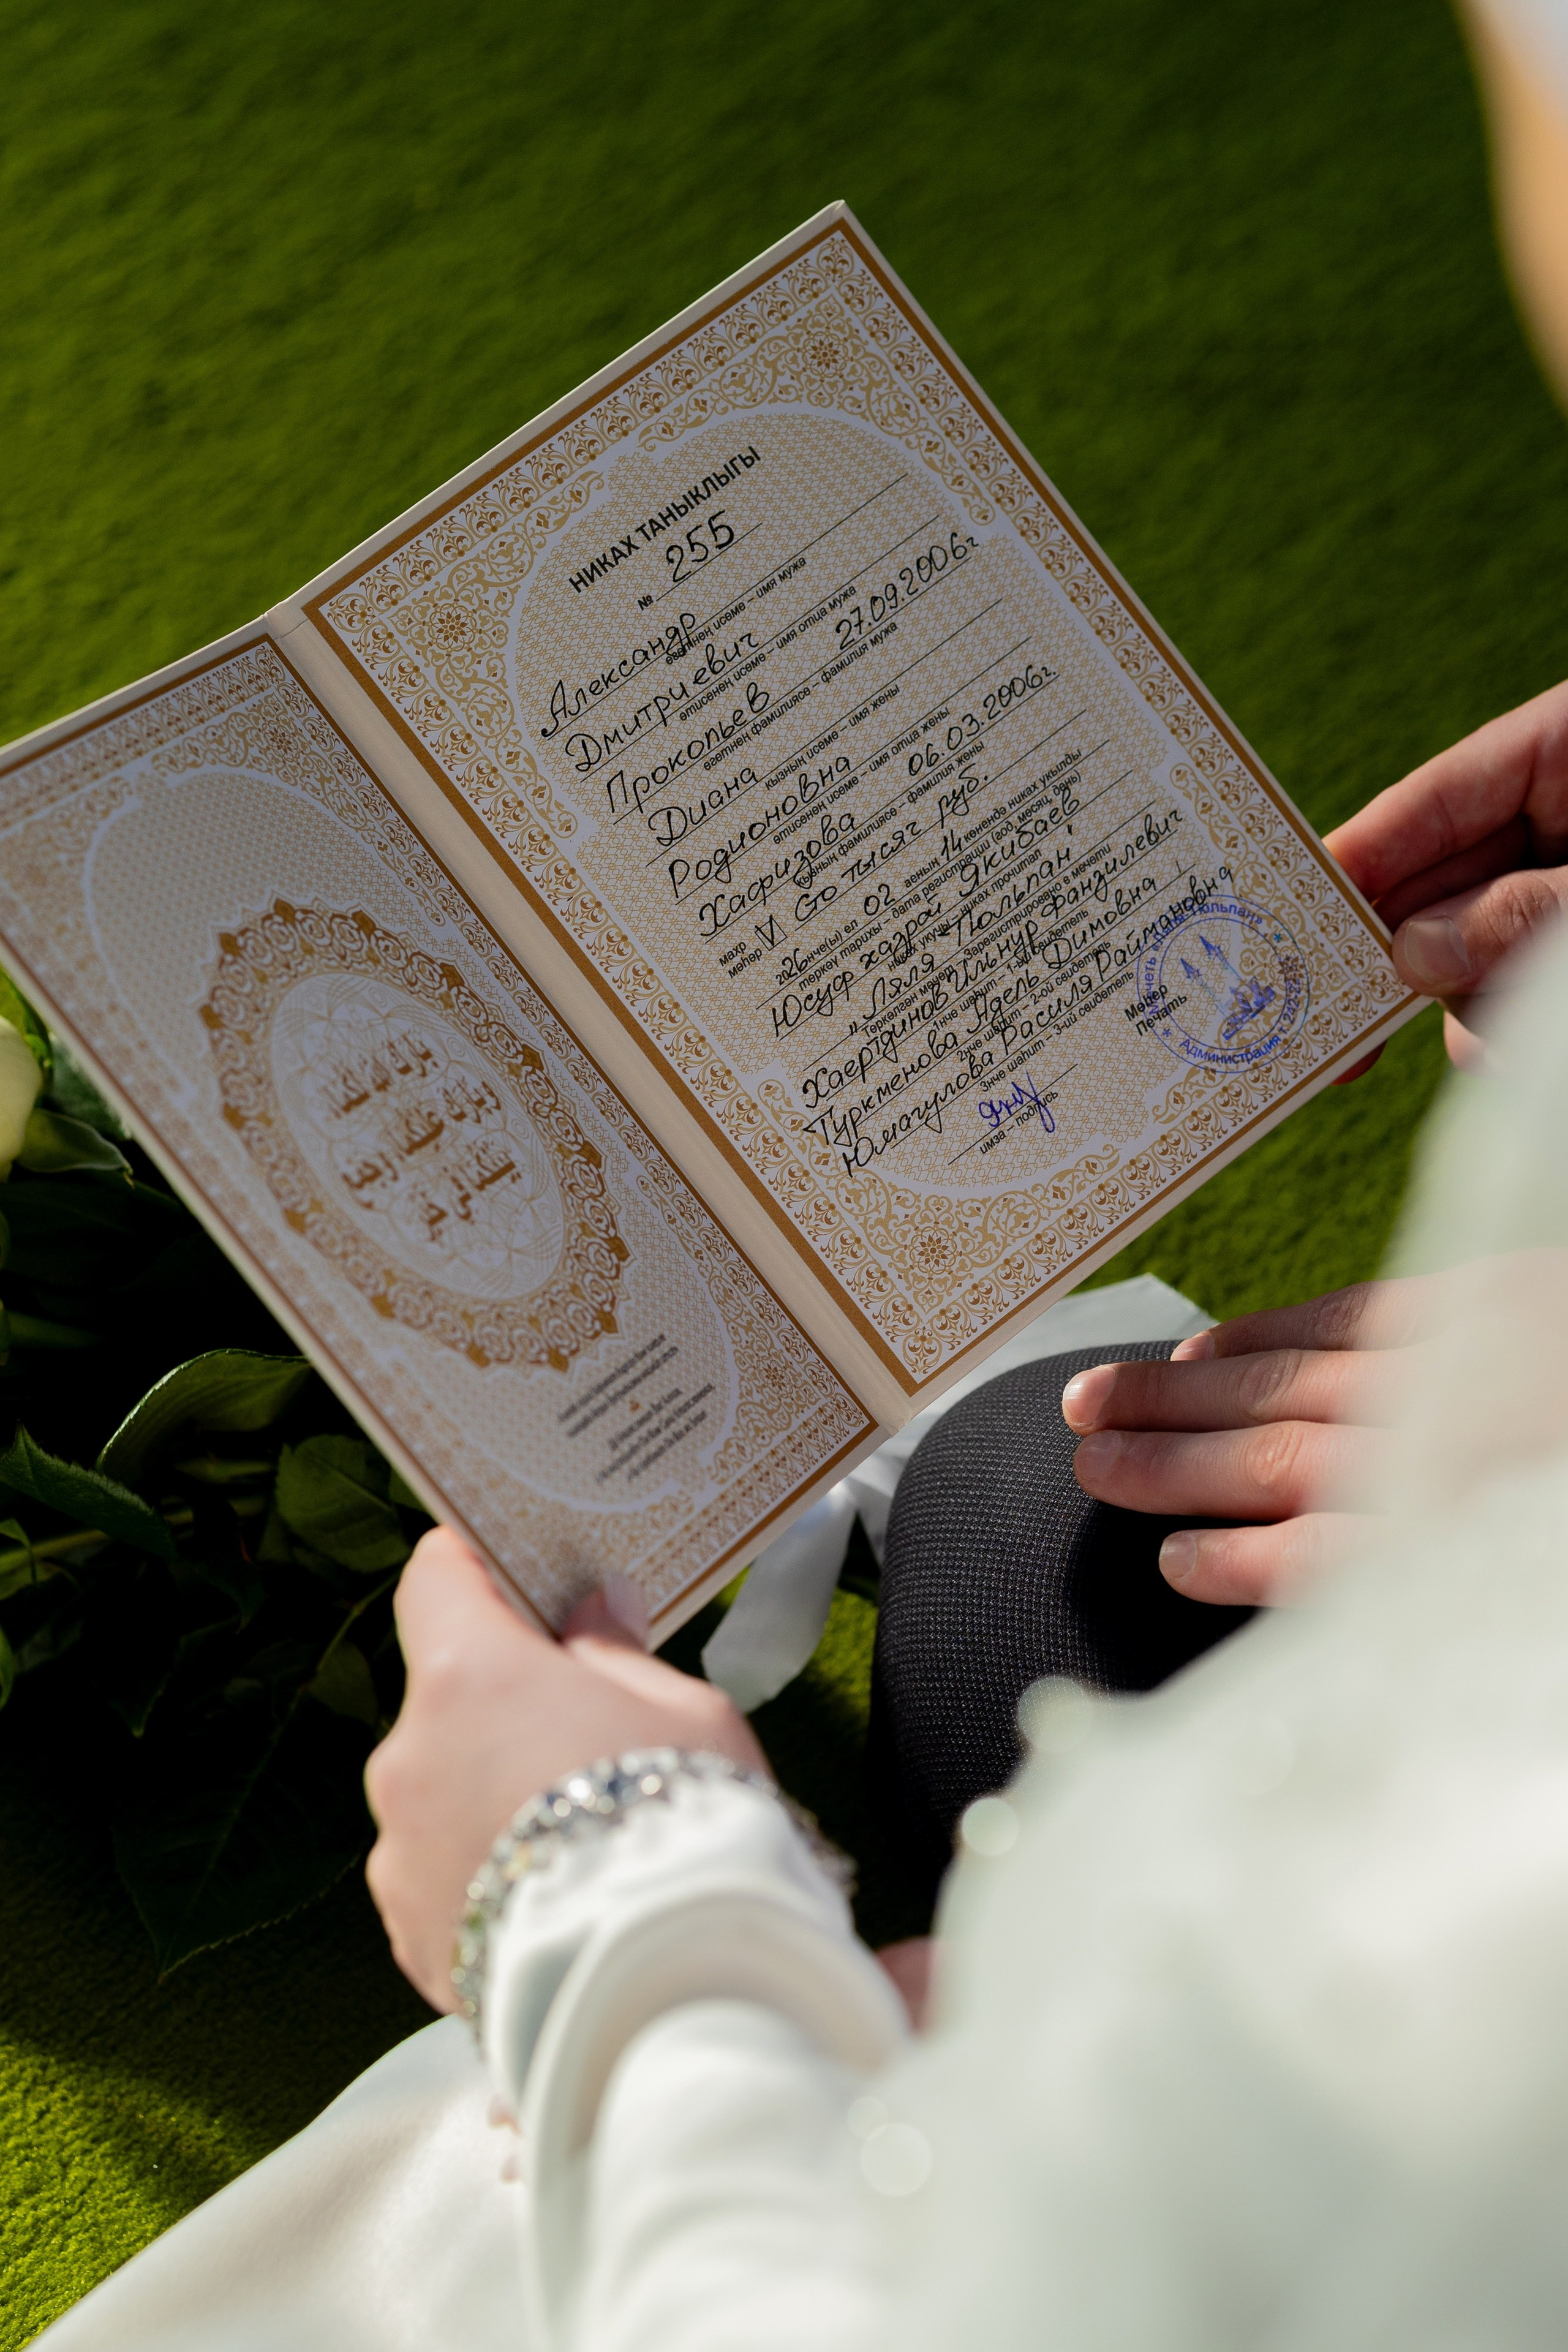 بارك الله لك
وبارك عليك وجمع
بينكما في
خير
НИКАХ ТАНЫКЛЫГЫ
№ 255
Александр
егетнең исеме – имя мужа
Дмитриевич
әтисенең исеме – имя отца мужа
Прокопьев 27.09.2006г
егетнең фамилиясе – фамилия мужа
Диана
кызның исеме – имя жены
Родионовна
әтисенең исеме – имя отца жены
Хафизова 06.03.2006г.
кызның фамилиясе – фамилия жены
махр
мәһер V Сто тысяч руб.
2026нче(ы) ел 02 аеның 14 көнендә никах укылды
теркәү тарихы – дата регистрации (год, месяц, день)
Юсуф хазрат Якибаев
никах укучы – никах прочитал
"Ляля Тюльпан"
Теркәлгән мәчет – Зарегистрировано в мечети
Хаертдинов Ильнур Фанзилевич
1нче шаһит – 1-ый свидетель
Туркменова Адель Димовна
2нче шаһит – 2-ой свидетель
Юмагулова Расиля Раймановна
3нче шаһит – 3-ий свидетель
имза – подпись
Мөһер
Печать
Мечеть «Ляля-Тюльпан»
Администрация